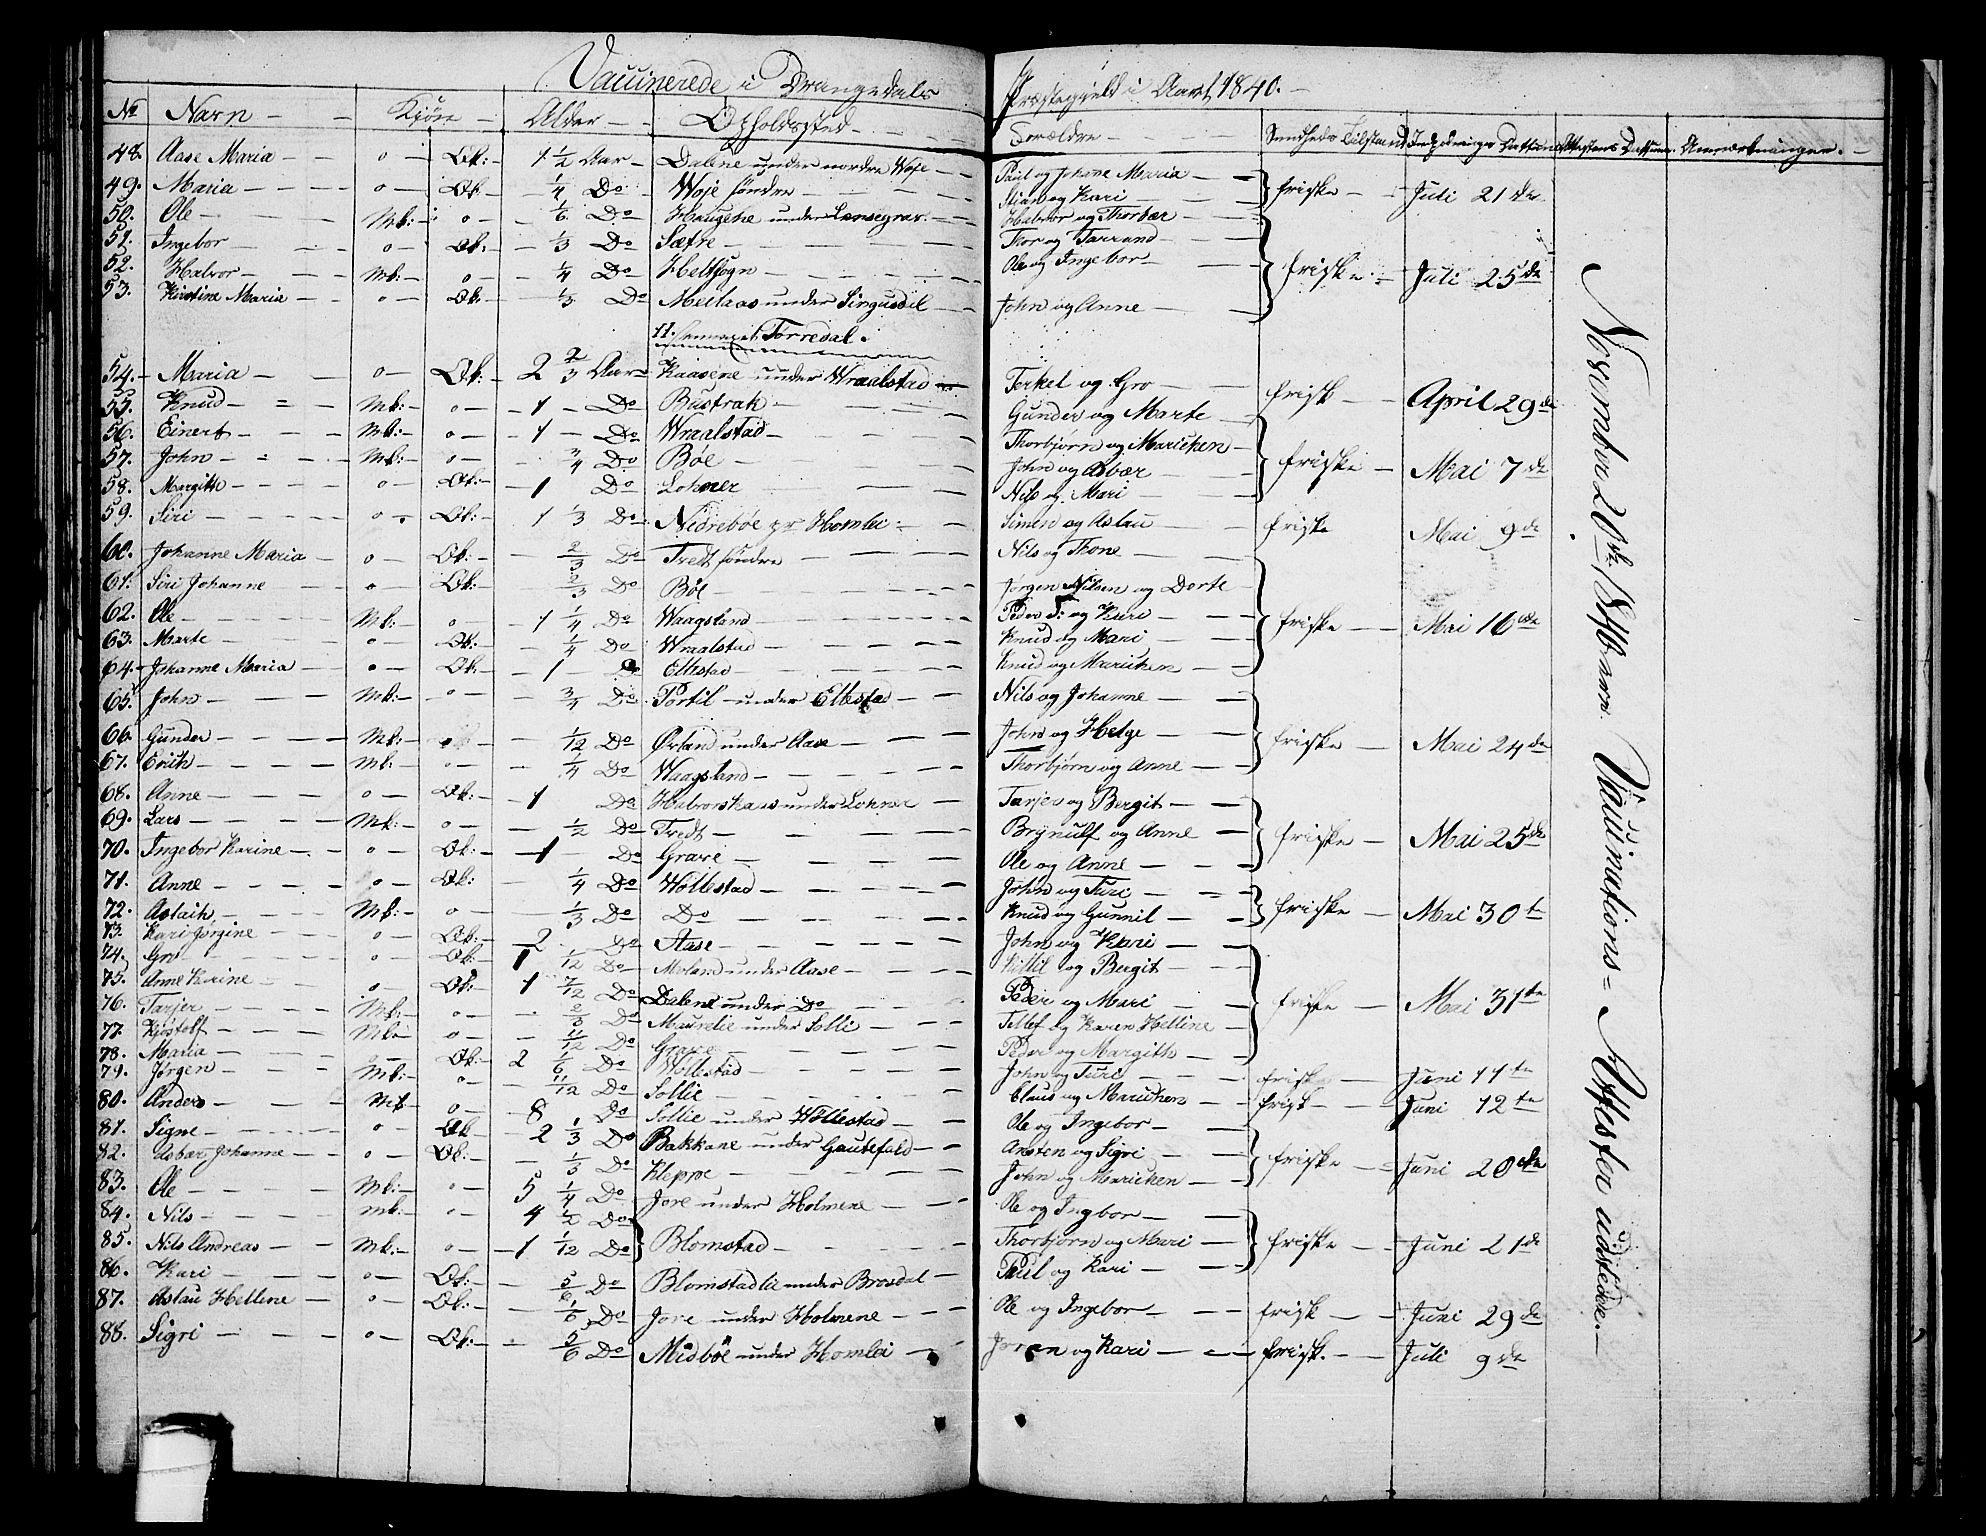 Vaccinerede i Drangedals Præstegield i Aaret 1840.
No Navn Kjøn Alder Opholdssted Forældre Sundheds Tilstand Indpodnings Dattum Attestens Dattum Anmærkninger.
48. Aase Maria Qk: 1 1/2 Aar Dalene under nordre Woje Paul og Johane Maria
49. Maria Qk: 1/4 Do Woje søndre Stian og Kari friske Juli 21de
50. Ole Mk: 1/6 Do Haugene under Lensegrav Halvor og Thorbær
51. Ingebor Qk: 1/3 Do Sætre Thor og Tarrand
52. Halvor Mk: 1/4 Do Heltsogn Ole og Ingebor friske Juli 25de
53. Kirstine Maria Qk: 1/3 Do Mellaas under Singusdal John og Anne
Torredal.
54. Maria Qk: 2 2/3 Aar Kaasene under Wraalstad Terkel og Gro frisk April 29de
55. Knud Mk: 1 Do Bustrak Gunder og Marte
56. Einert Mk: 1 Do Wraalstad Thorbjørn og Marichen
57. John Mk: 3/4 Do Bøe John og Asbær friske Mai 7de
58. Margith Qk: 1 Do Lohner Nils og Mari
59. Siri Qk: 1 1/3 Do Nedrebøe pr Homlei Simen og Aslau friske Mai 9de
60. Johanne Maria Qk: 2/3 Do Tredt søndre Nils og Thone
61. Siri Johanne Qk: 2/3 Do Bøe Jørgen Nilsen og Dorte
62. Ole Mk: 1 1/4 Do Waagsland Peder T: og Kari
63. Marte Qk: 1/4 Do Wraalstad Knud og Mari friske Mai 16de
64. Johanne Maria Qk: 1 Do Ellestad Knud og Marichen
65. John Mk: 3/4 Do Portil under Ellestad Nils og Johanne
66. Gunder Mk: 1/12 Do Ørland under Aase John og Helge friske Mai 24de
67. Erich Mk: 1/4 Do Waagsland Thorbjørn og Anne
68. Anne Qk: 1 Do Halvorskaas under Lohner Tarjer og Bergit
69. Lars Mk: 1/2 Do Tredt Brynulf og Anne friske Mai 25de
70. Ingebor Karine Qk: 1 Do Grave Ole og Anne
71. Anne Qk: 1/4 Do Hollestad John og Turi
72. Aslaik Mk: 1/3 Do Do Knud og Gunnil friske Mai 30te
73. Kari Jørgine Qk: 2 Do Aase John og Kari
74. Gro Qk: 1 1/12 Do Moland under Aase Kittil og Bergit
75. Anne Karine Qk: 1 7/12 Do Dalene under Do Peder og Mari friske Mai 31te
76. Tarjer Mk: 2/3 Do Maurelie under Solli Tellef og Karen Helline
77. Kjøstolf Mk: 11/12 Do Grave Peder og Margith
78. Maria Qk: 2 1/6 Do Hollestad John og Turi friske Juni 11te
79. Jørgen Mk: 11/12 Do Sollie Claus og Marichen frisk Juni 12te
80. Anders Mk 8 Do Sollie under Hollestad Ole og Ingebor
81. Signe Qk 2 1/3 Do Bakkane under Gautefald Ansten og Sigri friske Juni 20de
82. Asbær Johanne Qk: 1/3 Do Kleppe John og Marichen
83. Ole Mk: 5 1/4 Do Jore under Holmene Ole og Ingbor
84. Nils Mk: 4 1/2 Do Blomstad Thorbjørn og Mari friske Juni 21de
85. Nils Andreas Mk: 1 1/12 Do
86. Kari Qk: 5/6 Do Blomstadlie under Brosdal Paul og Kari
87. Aslau Helline Qk: 1/6 Do Jore under Holmene Ole og Ingebor frisk Juni 29de
88. Sigri Qk: 5/6 Do Midbøe under Homlei Joran og Kari frisk. Juli 9de
November 20de 1840 Vaccinations-Attester udstedde.